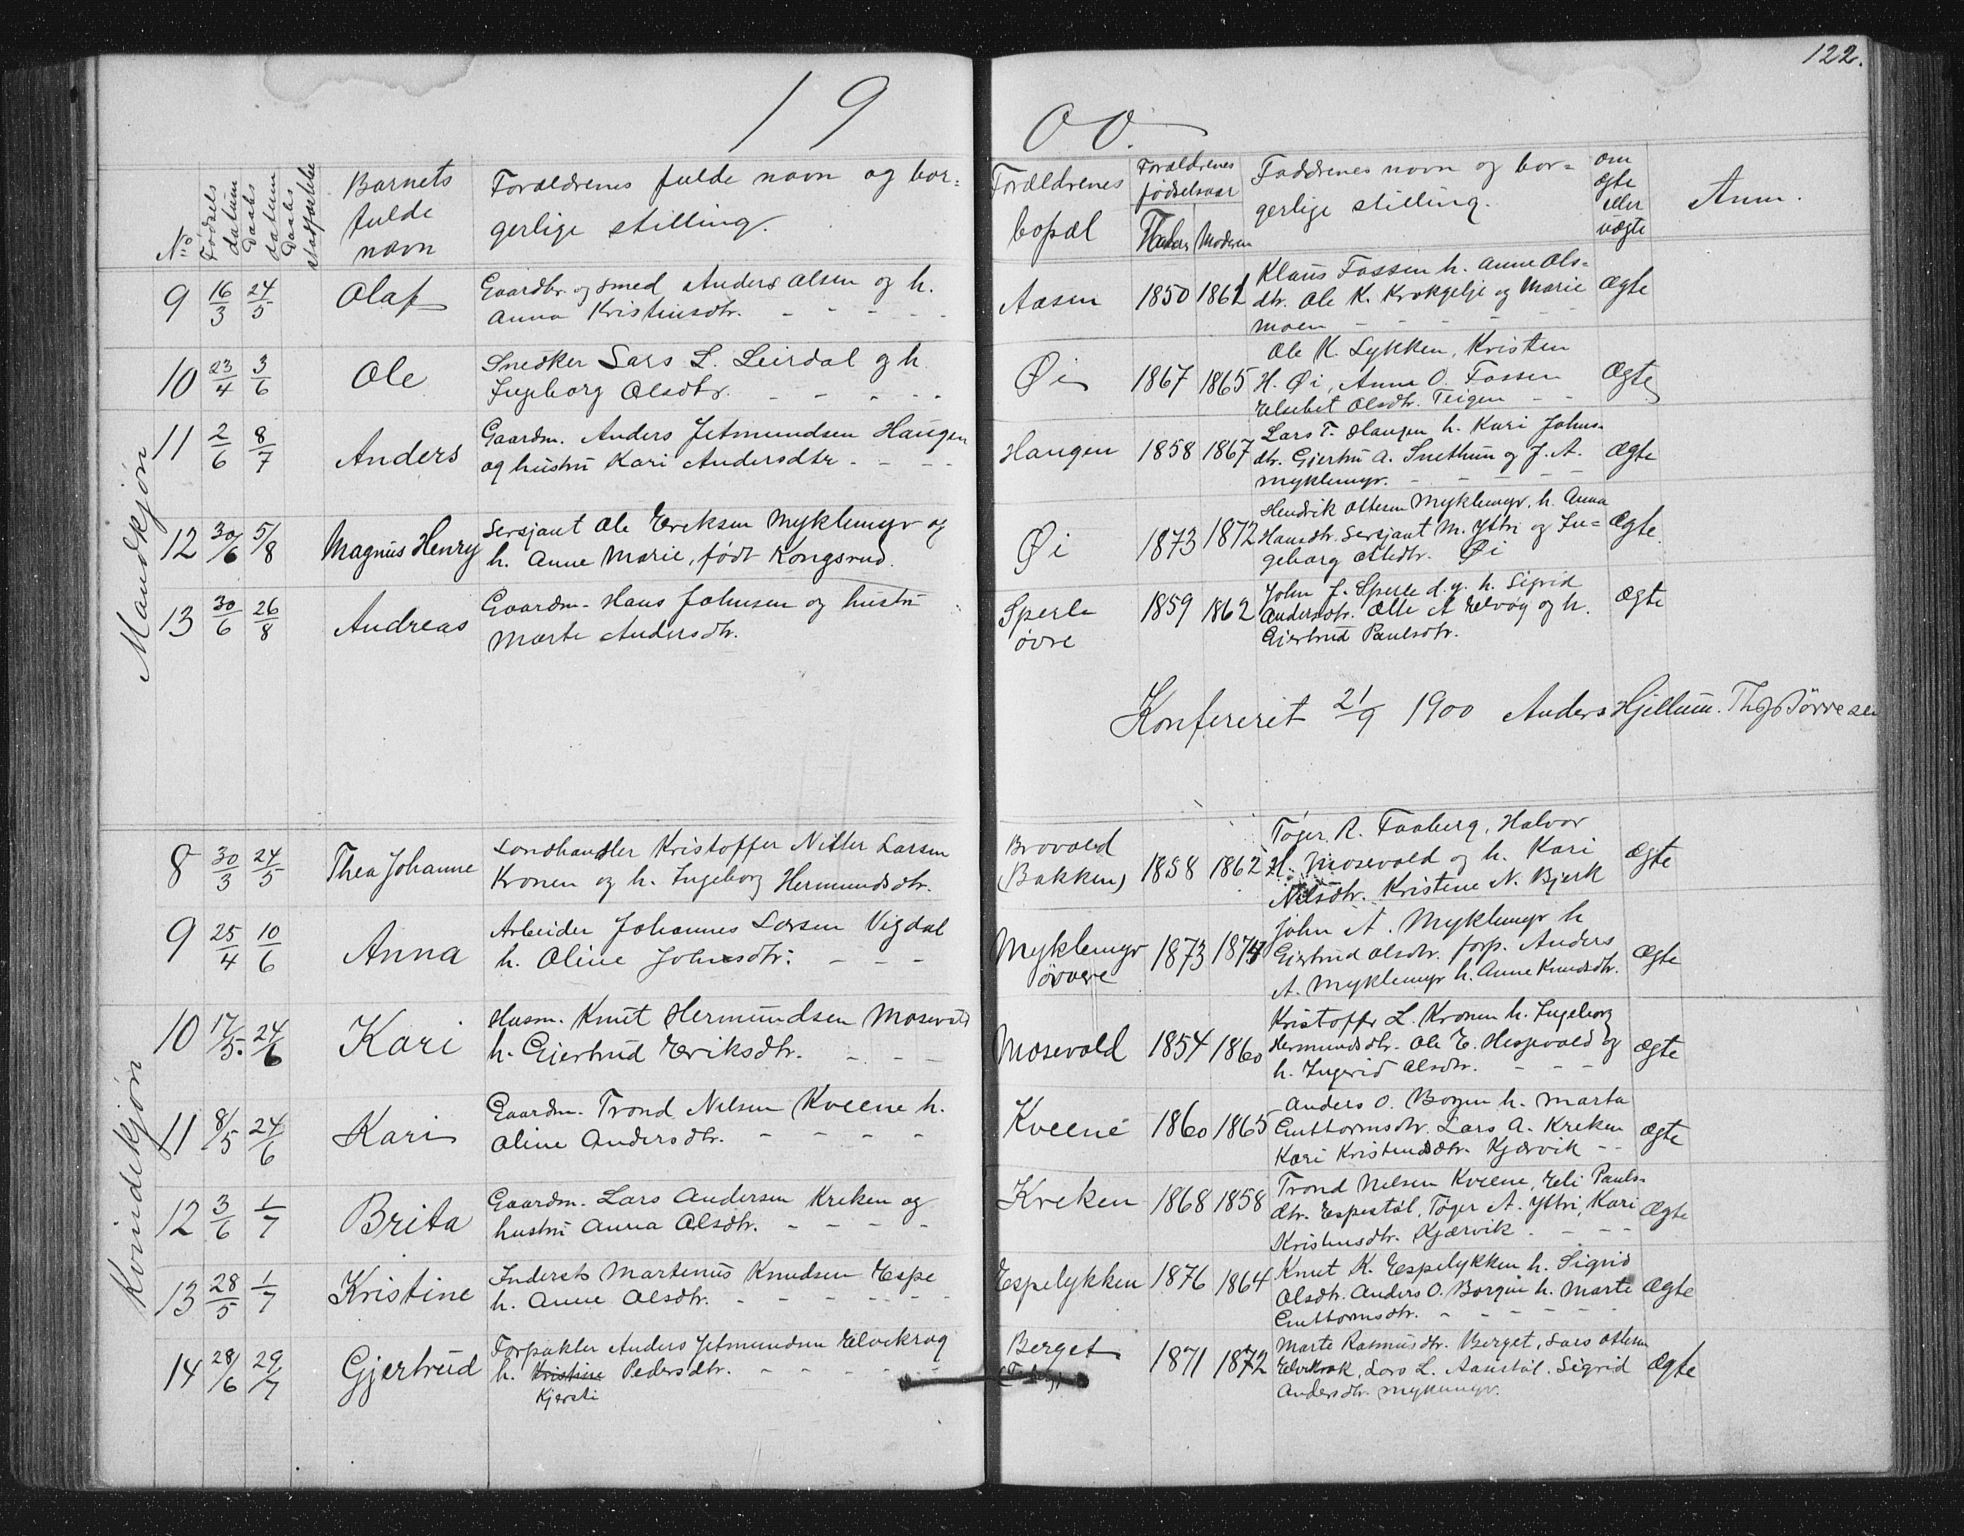 122.
1 9 0 0.
No
Fødsels datum
Daabs datum
Daabs stadfæstelse
Barnets fulde navn
Forældrenes fulde navn og bor=
gerlige stilling.
Forældrenes bopæl
Forældrenes fødselsaar
Faderen Moderen
Faddrenes navn og bor=
gerlige stilling.
om ægte eller uægte
Anm.
Mandkjøn
9 16/3 24/5 Olaf
Gaardbr. og smed Anders Olsen og h.
Anna Kristensdtr.
Aasen 1850 1861
Klaus Fossen h. Anne Ols-
dtr. Ole K. Krokgelje og Marie
Moen
Ægte
10 23/4 3/6 Ole
Snedker Lars L. Leirdal og h.
Ingeborg Olsdtr.
Øi 1867 1865
Ole K. Lykken, Kristen
H. Øi, Anna O. Fossen
Elsebet Olsdtr. Teigen
Ægte
11 2/6 8/7 Anders
Gaardm. Anders Jetmundsen Haugen
og hustru Kari Andersdtr.
Haugen 1858 1867
Lars T. Haugen h. Kari Johns-
dtr. Gjertru A. Snethun og J. A.
Myklemyr.
Ægte
12 30/6 5/8 Magnus Henry
Sersjant Ole Eriksen Myklemyr og
h. Anne Marie, født Kongsrud.
Øi 1873 1872
Hendrik Ottesen Myklemyr, h. Anna
Hansdtr. Sersjant M. Yttri og In=
geborg Ottedtr. Øi
Ægte.
13 30/6 26/8 Andreas
Gaardm. Hans Johnsen og hustru
Marte Andersdtr.
Sperle øvre 1859 1862
John J. Sperle d.y. h. Sigrid
Andersdtr. Olle A Elvøy og h.
Gjertrud Paulsdtr.
Ægte
Konfereret 21/9 1900 Anders Hjellum. Th. Tørresen
Kvindekjøn
8 30/3 24/5 Thea Johanne
Landhandler Kristoffer Nitter Larsen
Kronen og h. Ingeborg Hermundsdtr.
Brovold (Bakken) 1858 1862
Tøger R. Faaberg, Halvor
H. Mosevold og h. Kari
Nilsdtr. Kristene N. Bjerk
Ægte
9 25/4 10/6 Anna
Arbeider Johannes Larsen Vigdal
h. Oline Johnsdtr.
Myklemyr øvre 1873 1874
John A. Myklemyr h
Gjertrud Olsdtr. forp. Anders
A. Myklemyr h. Anne Knudsdtr.
Ægte
10 17/5. 24/6 Kari
Husm. Knut Hermundsen Mosevold
h. Gjertrud Eriksdtr.
Mosevold 1854 1860
Kristoffer L. Kronen h. Ingeborg
Hermundsdtr. Ole E. Hespevold og
h. Ingerid Olsdtr.
Ægte
11 8/5 24/6 Kari
Gaardm. Trond Nilsen Kveene h.
Oline Andersdtr.
Kveene 1860 1865
Anders O. Bogen h. Marta
Guttormsdtr. Lars A. Kreken
Kari Kristensdtr. Kjærvik
Ægte
12 3/6 1/7 Brita
Gaardm. Lars Andersen Kreken og
hustru Anna Olsdtr.
Kreken 1868 1858
Trond Nilsen Kveene, Eli Pauls-
dtr. Espestøl, Tøger A. Yttri, Kari
Kristensdtr. Kjærvik
Ægte
13 28/5 1/7 Kristine
Inderst Martenus Knudsen Espe
h. Anne Olsdtr.
Espelykken 1876 1864
Knut K. Espelykken h. Sigrid
Olsdtr. Anders O. Borgen h. Marte
Guttormsdtr.
Ægte
14 28/6 29/7 Gjertrud
Forpakter Anders Jetmundsen Elvekrog
h. Kristine Pedersdtr.
Kjersti
Berget 1871 1872
Marte Rasmusdtr. Berget, Lars Ottesen
Elvekrok, Lars L. Aanstøl. Sigrid
Andersdtr. Myklemyr.
Ægte